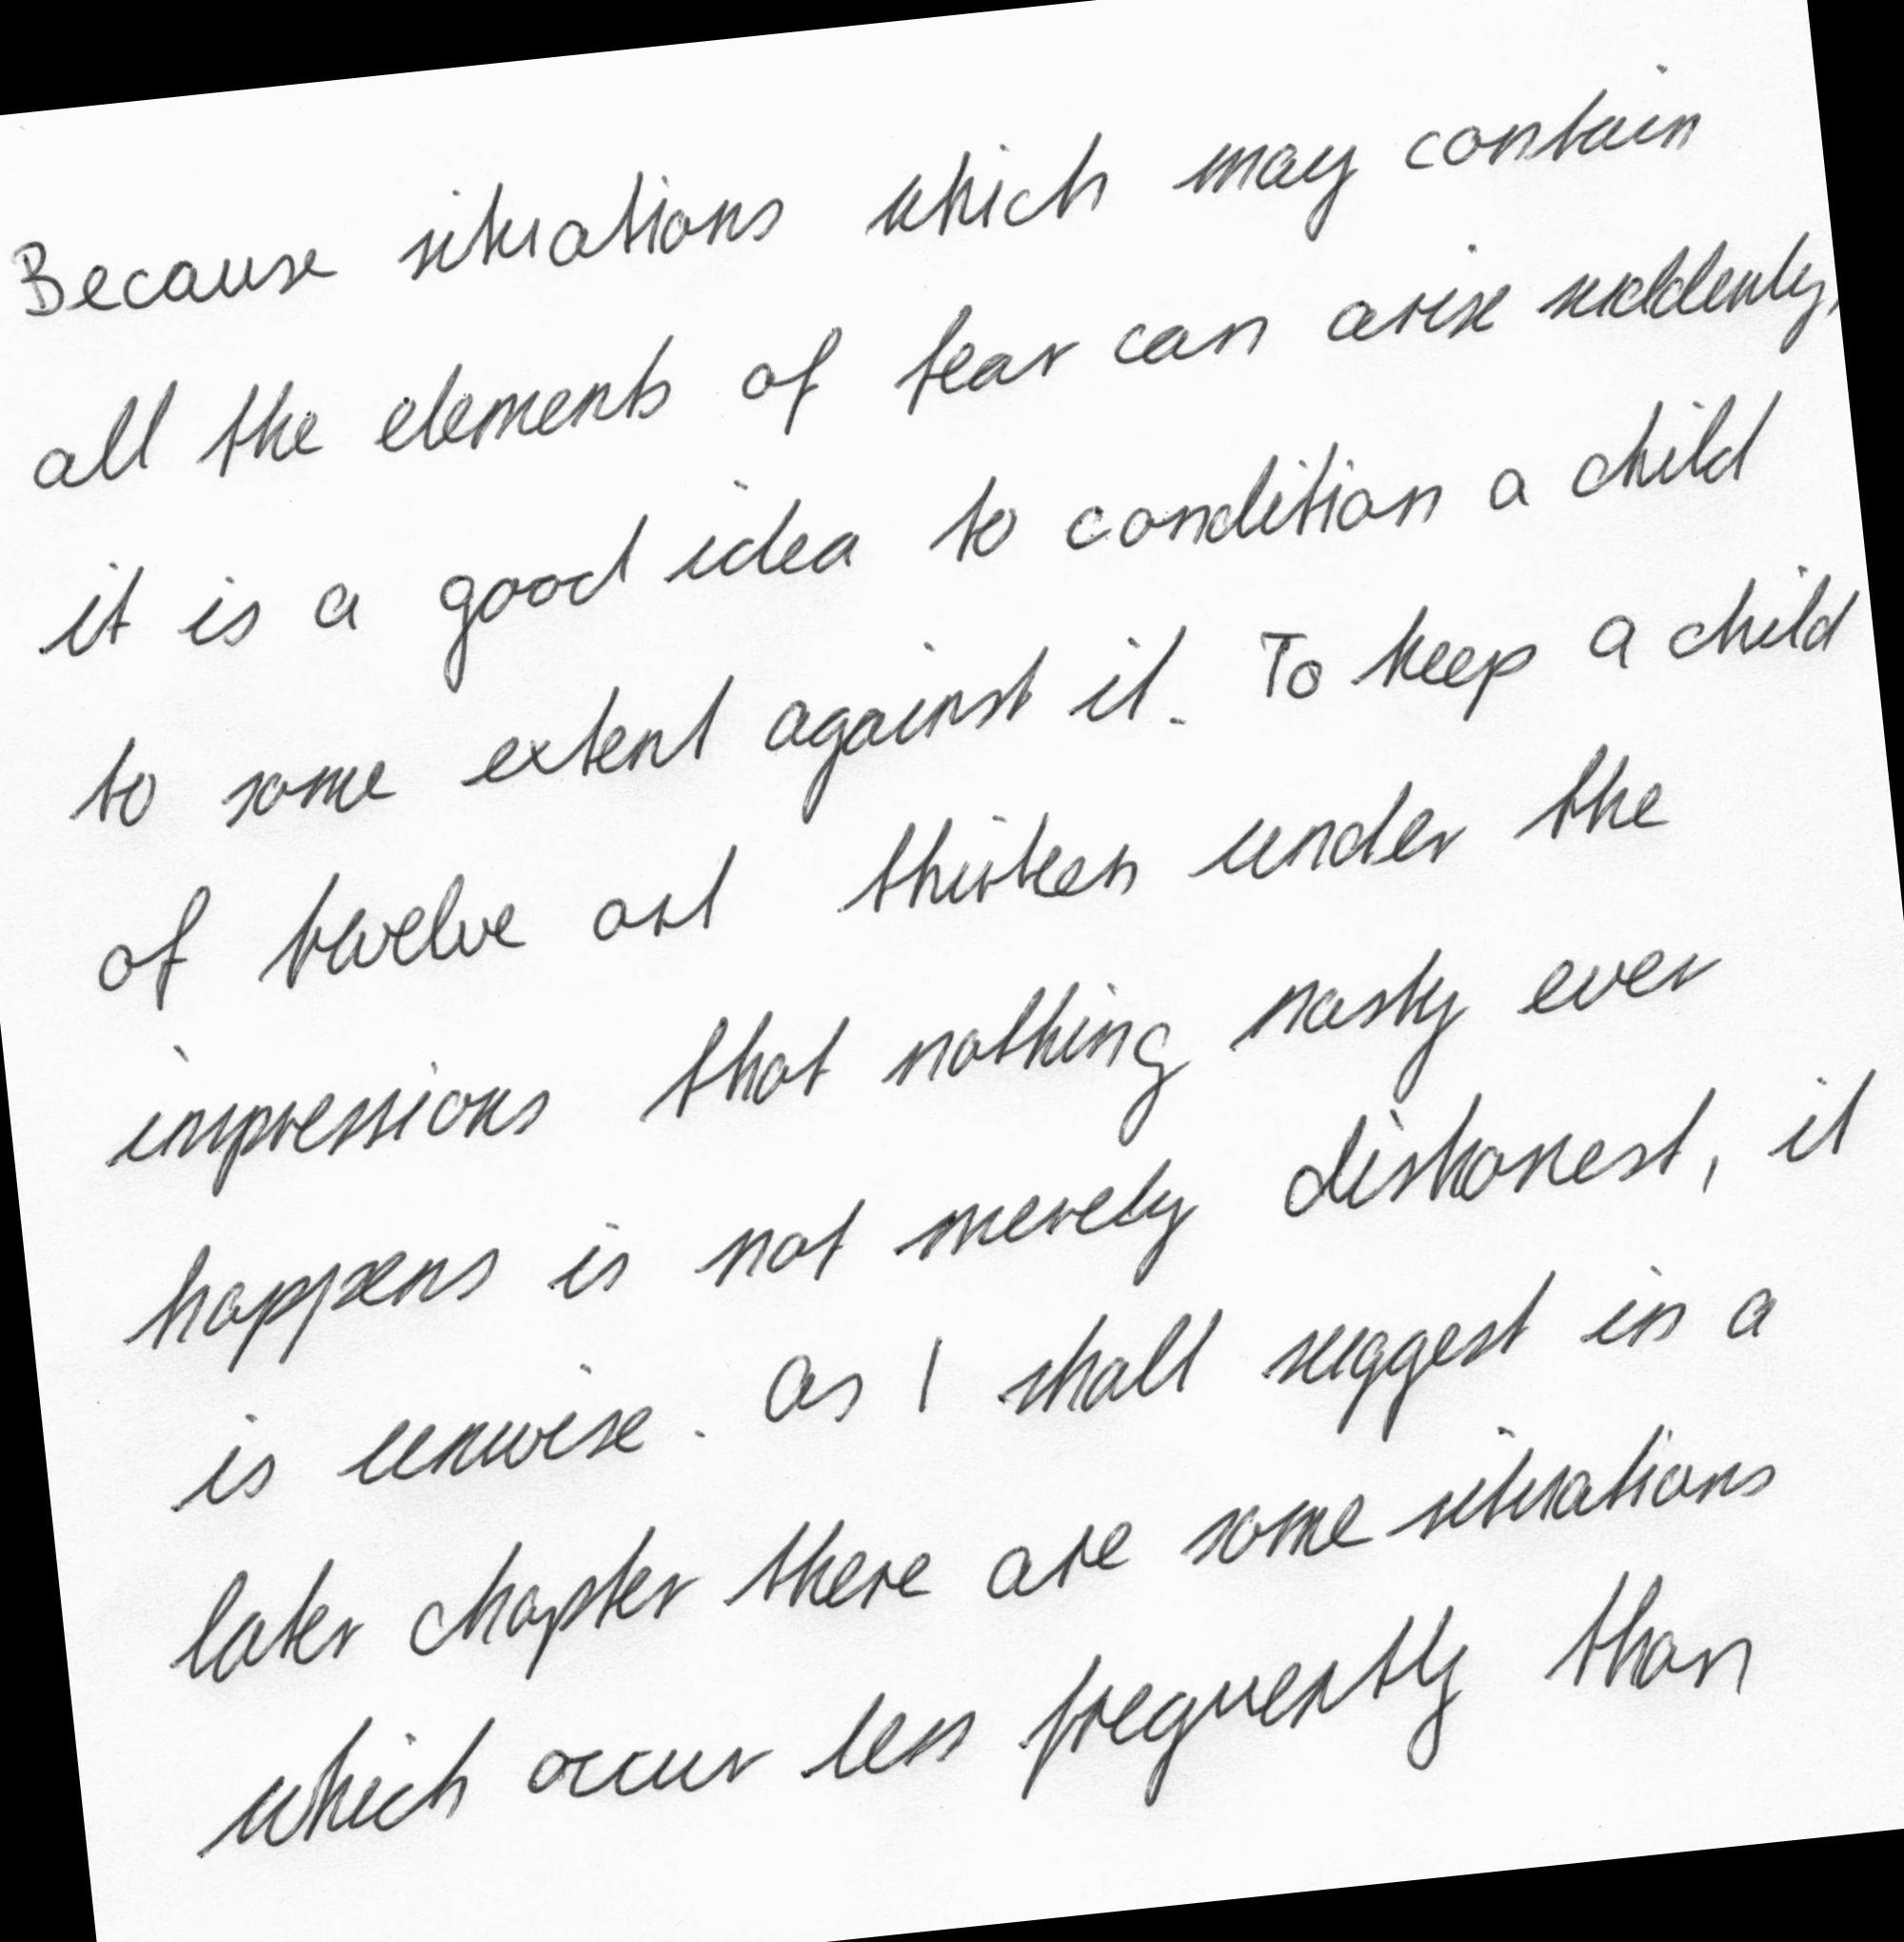 Because situations which may contain
all the elements of fear can arise suddenly,
it is a good idea to condition a child
to some extent against it. To keep a child
of twelve ort thirteen under the
impressions that nothing nasty ever
happens is not merely dishonest, it
is unwise. As I shall suggest in a
later chapter there are some situations
which occur less frequently than